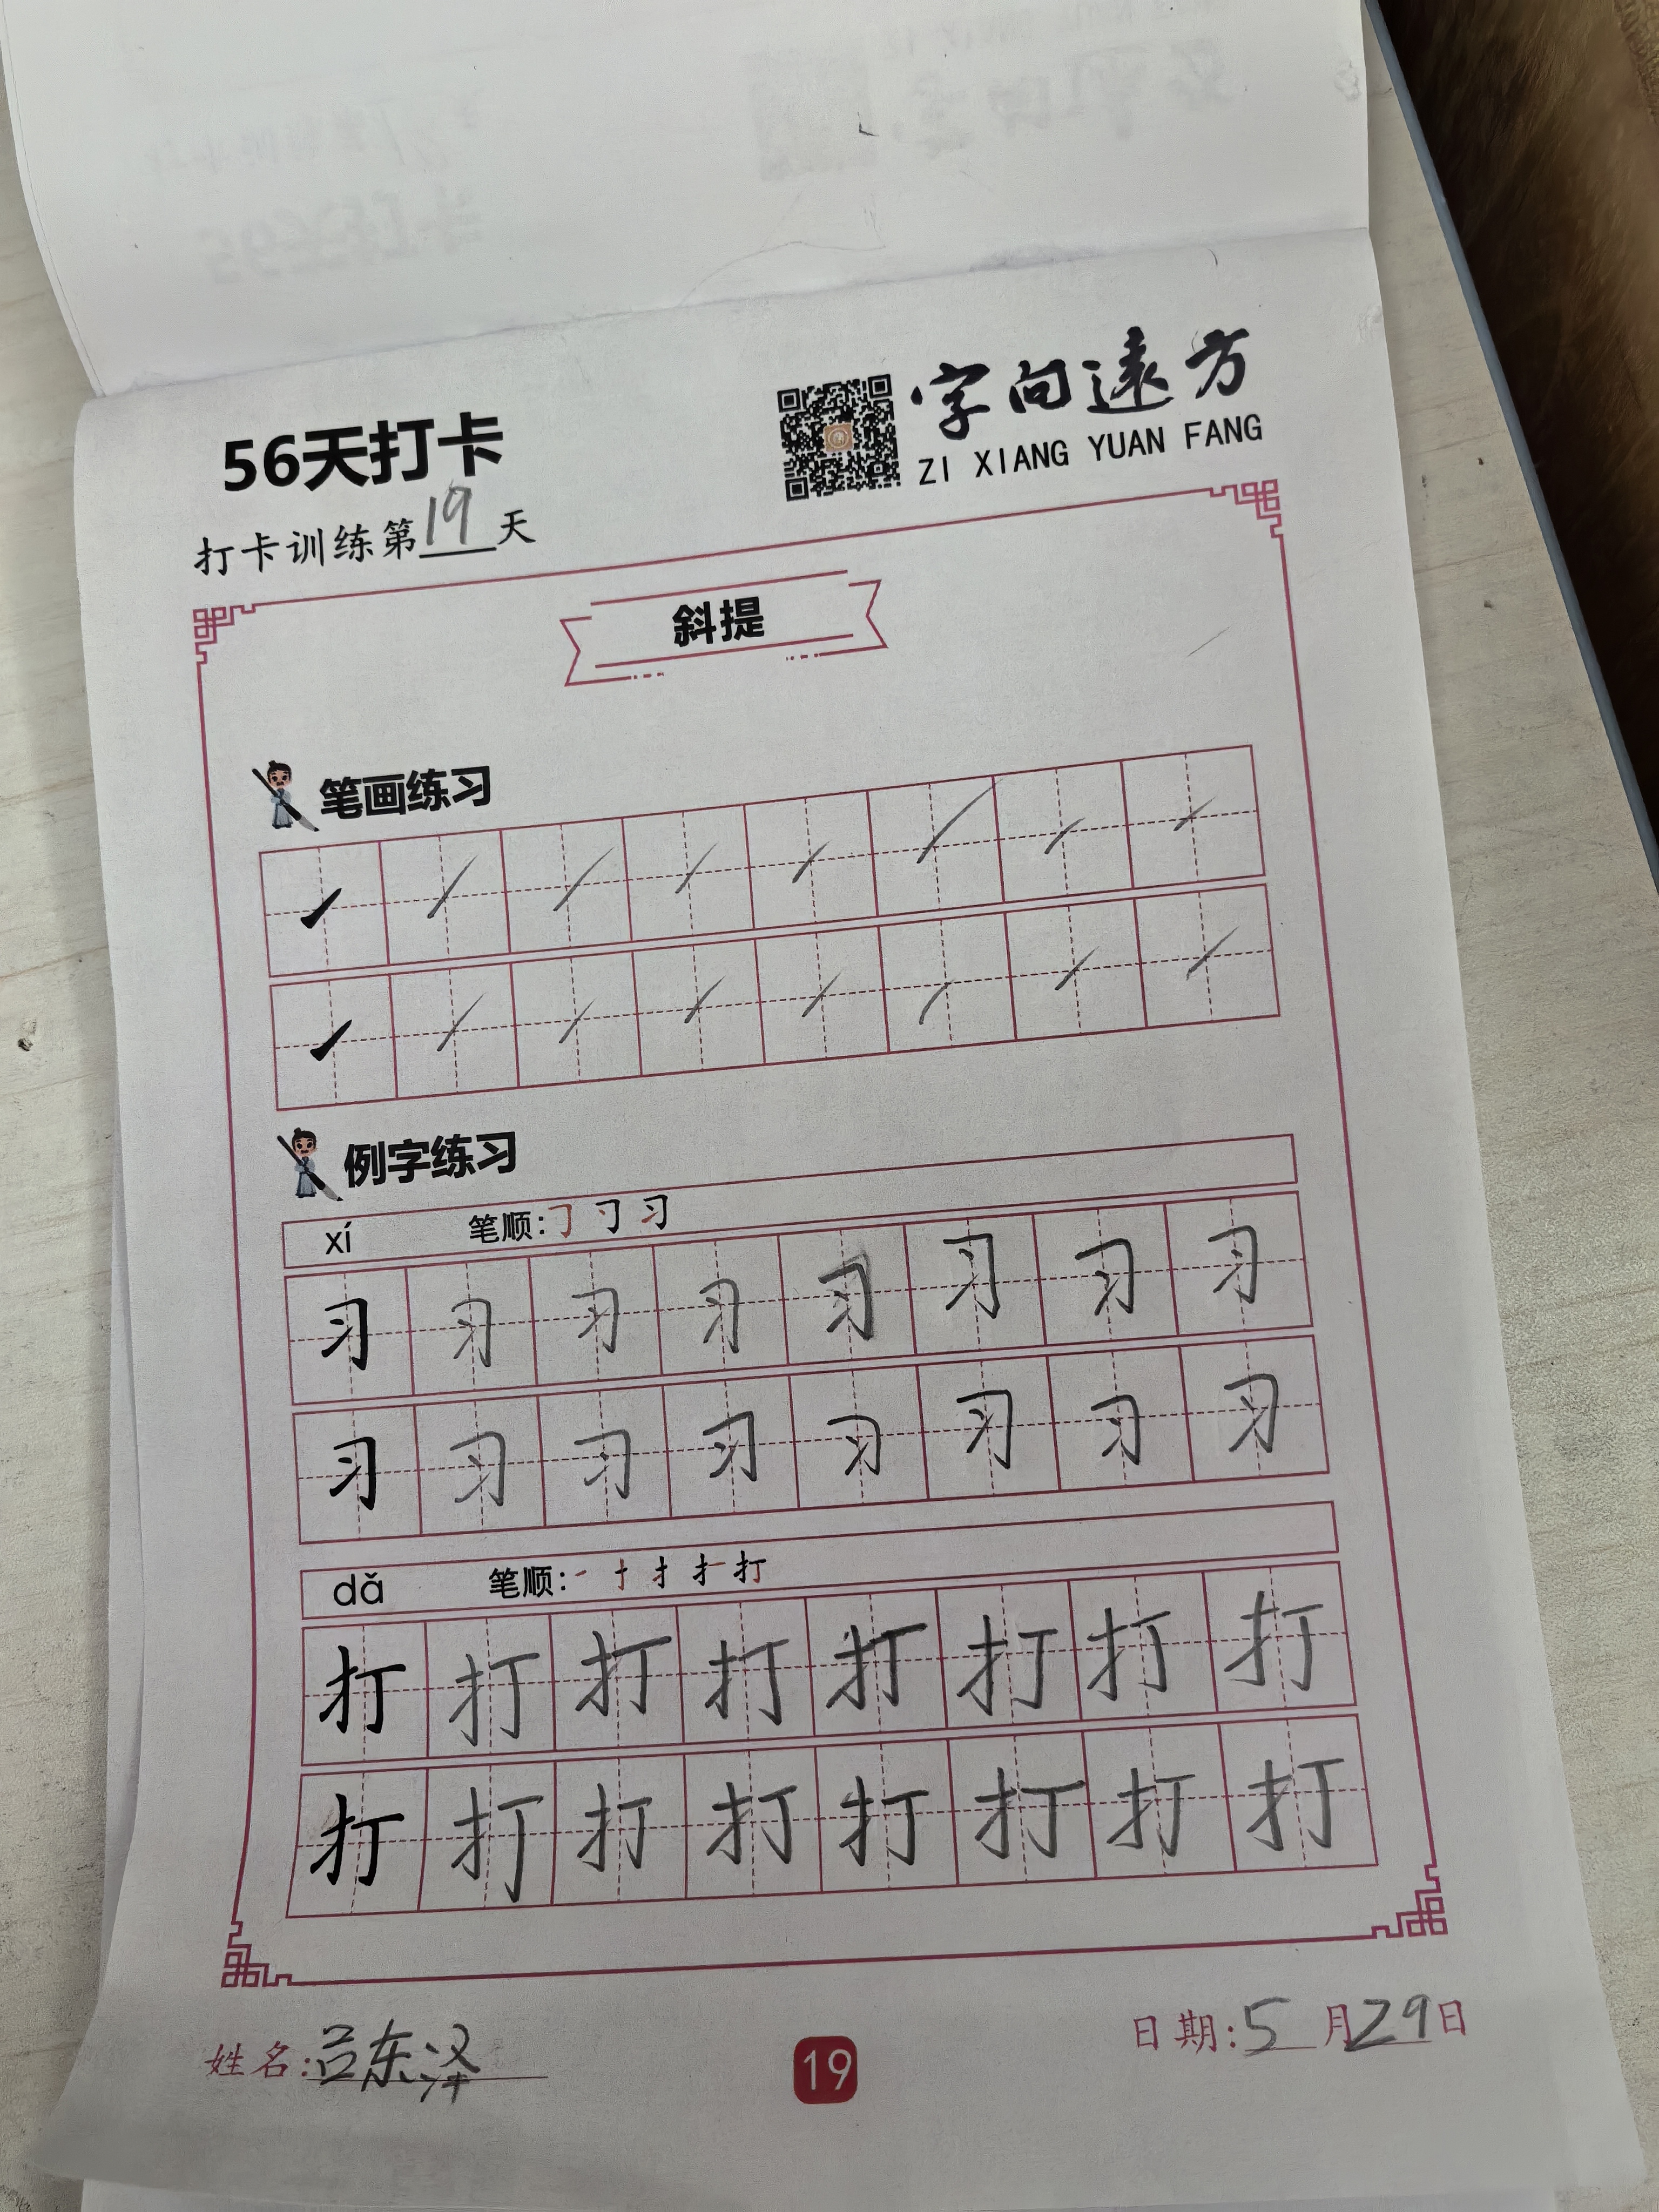 56天打卡
字向遠方
ZI XIANG YUAN FANG
打卡训练第19天
斜提
笔画练习
例字练习
xí 笔顺:
习 习 习 习 习 习 习 习
习 习 习 习 习 习 习 习
dǎ 笔顺: 打
打 打 打 打 打 打 打 打
打 打 打 打 打 打 打 打
姓名:吕东泽
19
日期:5月29日